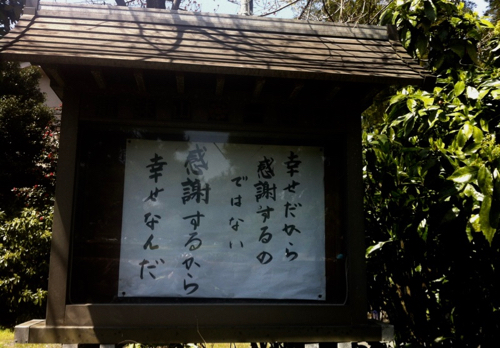 幸せだから
感謝するの
ではない
感謝するから
幸せなんだ